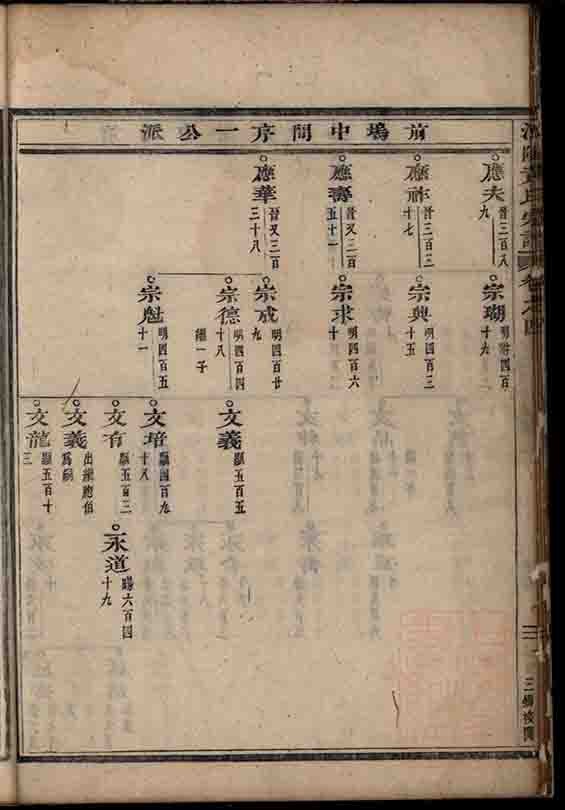 前塢中間序一公派
應夫
晉三百八
九
應祚
晉三百三
十七
應壽
晉又三百
五十一
應華
晉又三百
三十八
宗瑚
十六
宗典
明四百三
十五
宗求
明四百六
十
宗成
明四百廿
九
宗德
明四百四
十八
繼一子
宗魁
明四百五
十一
文義
顯五百五
文培
顯四百九
十八
文有
顯五百三
文義
出繼胞伯
為嗣
文龍
顯五百十
三
永道
六百四
十九
卷之四